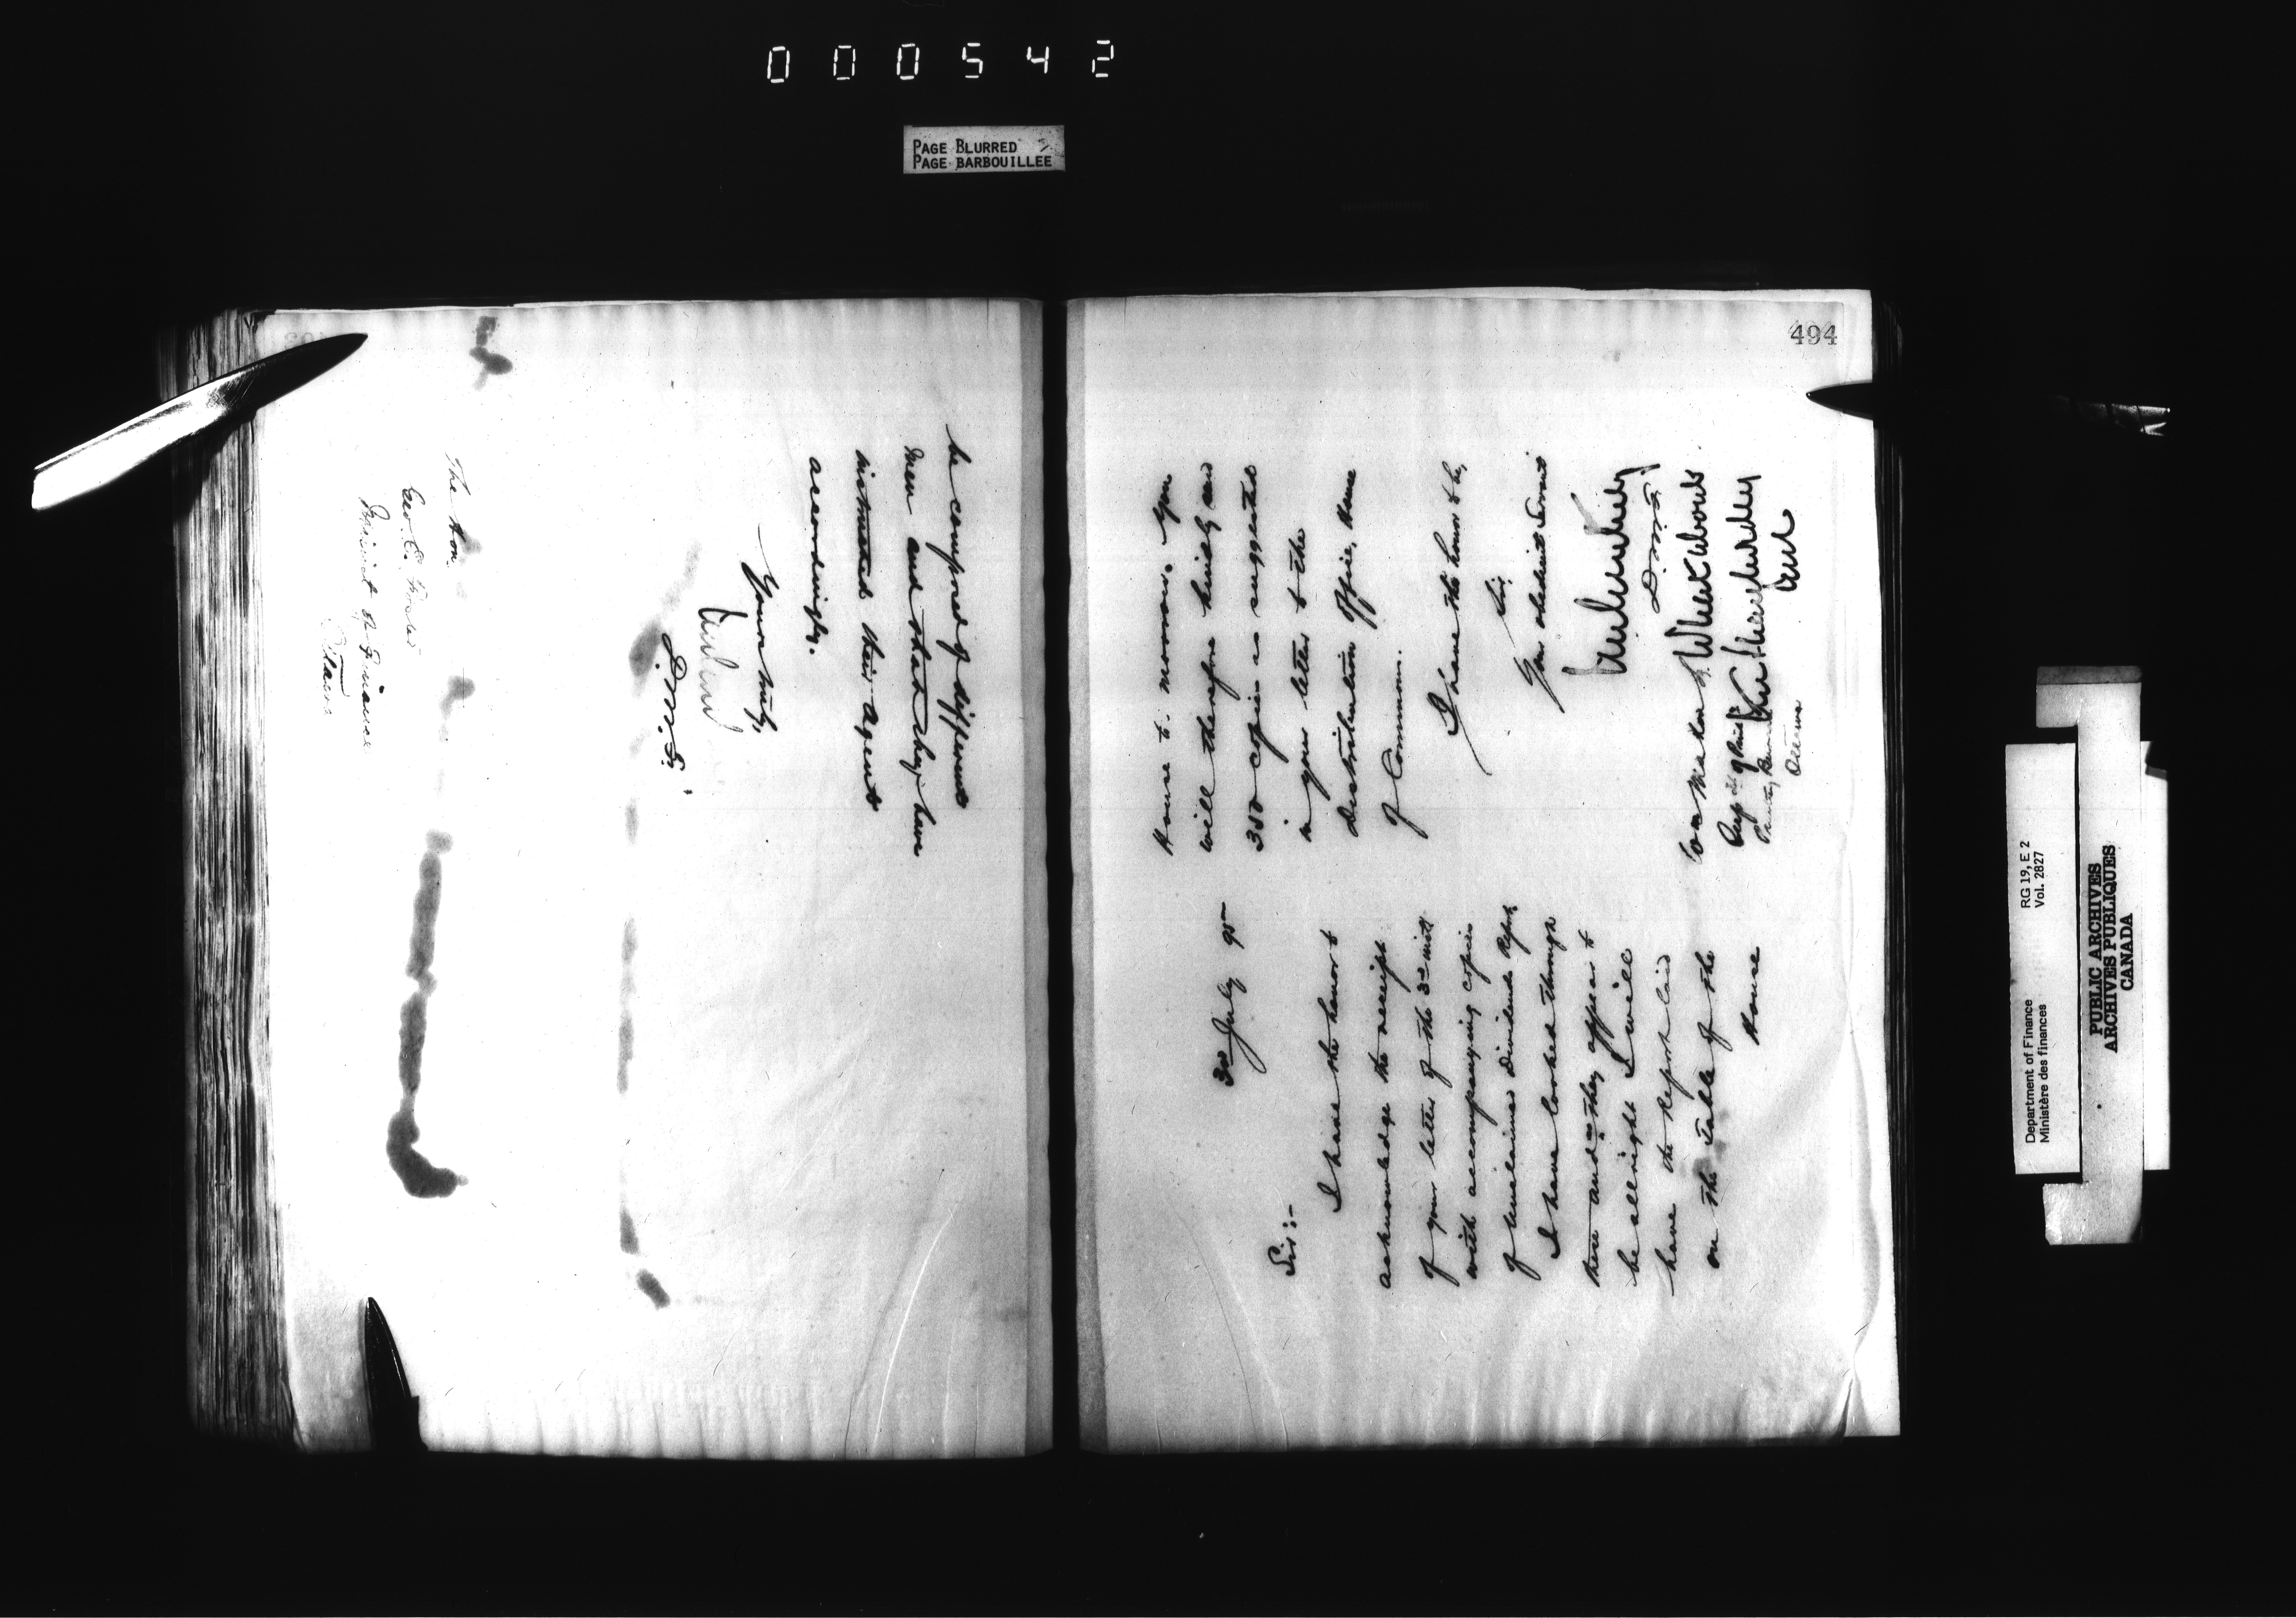 000542
PAGE BLURRED
PAGE BARBOUILLEE
be composed of different
men and that they have
instructed their agents
accordingly.
Yours truly,
D.M.F.
The Hon.
Geo. E. Foster
Minister of Finance
Ottawa
494
3rd July 95
Sir:-
I have the honor to
acknowledge the receipt
of your letter of the 3rd inst
with accompanying copies
of Unclaimed Dividends Report.
I have looked through
these and as they appear to
be allright I will
have the Report laid
on the Table of the
House
House to-morrow. You
will therefore kindly send
350 copies as suggested
in your letter to the
Distribution Office, House
of Commons.
I have the honor to be,
Sir,
Your obedient Servant
D.M.F.
Supdt of Printing
Printing Bureau
Ottawa
RG 19, E 2
Vol. 2827
Department of Finance
Ministère des finances
PUBLIC ARCHIVES
ARCHIVES PUBLIQUES
CANADA